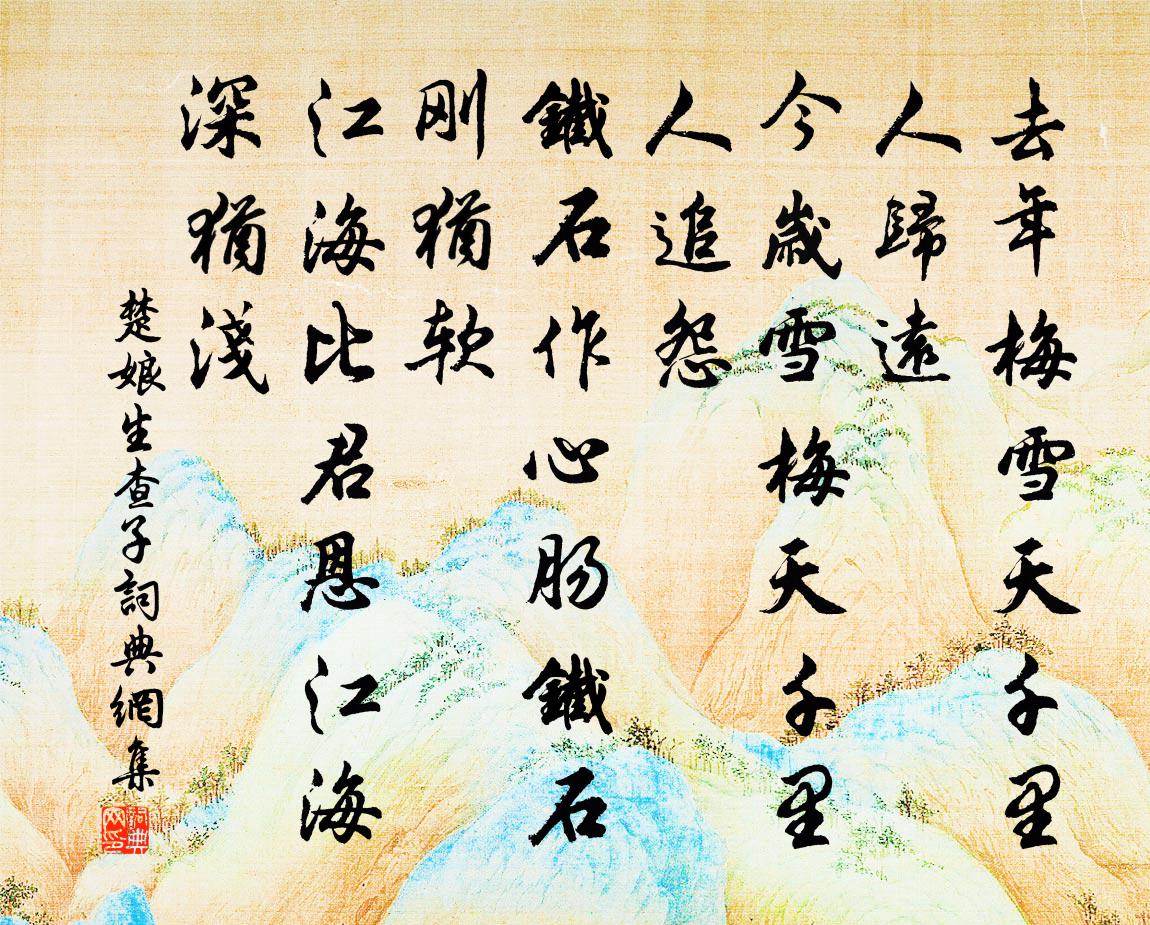 去年梅雪天千里
人歸遠
今歲雪梅天千里
人追怨
鐵石作心肠鐵石
刚猶软
江海比君恩江海
深猶淺
楚娘生查子詞典網集
詞典网印